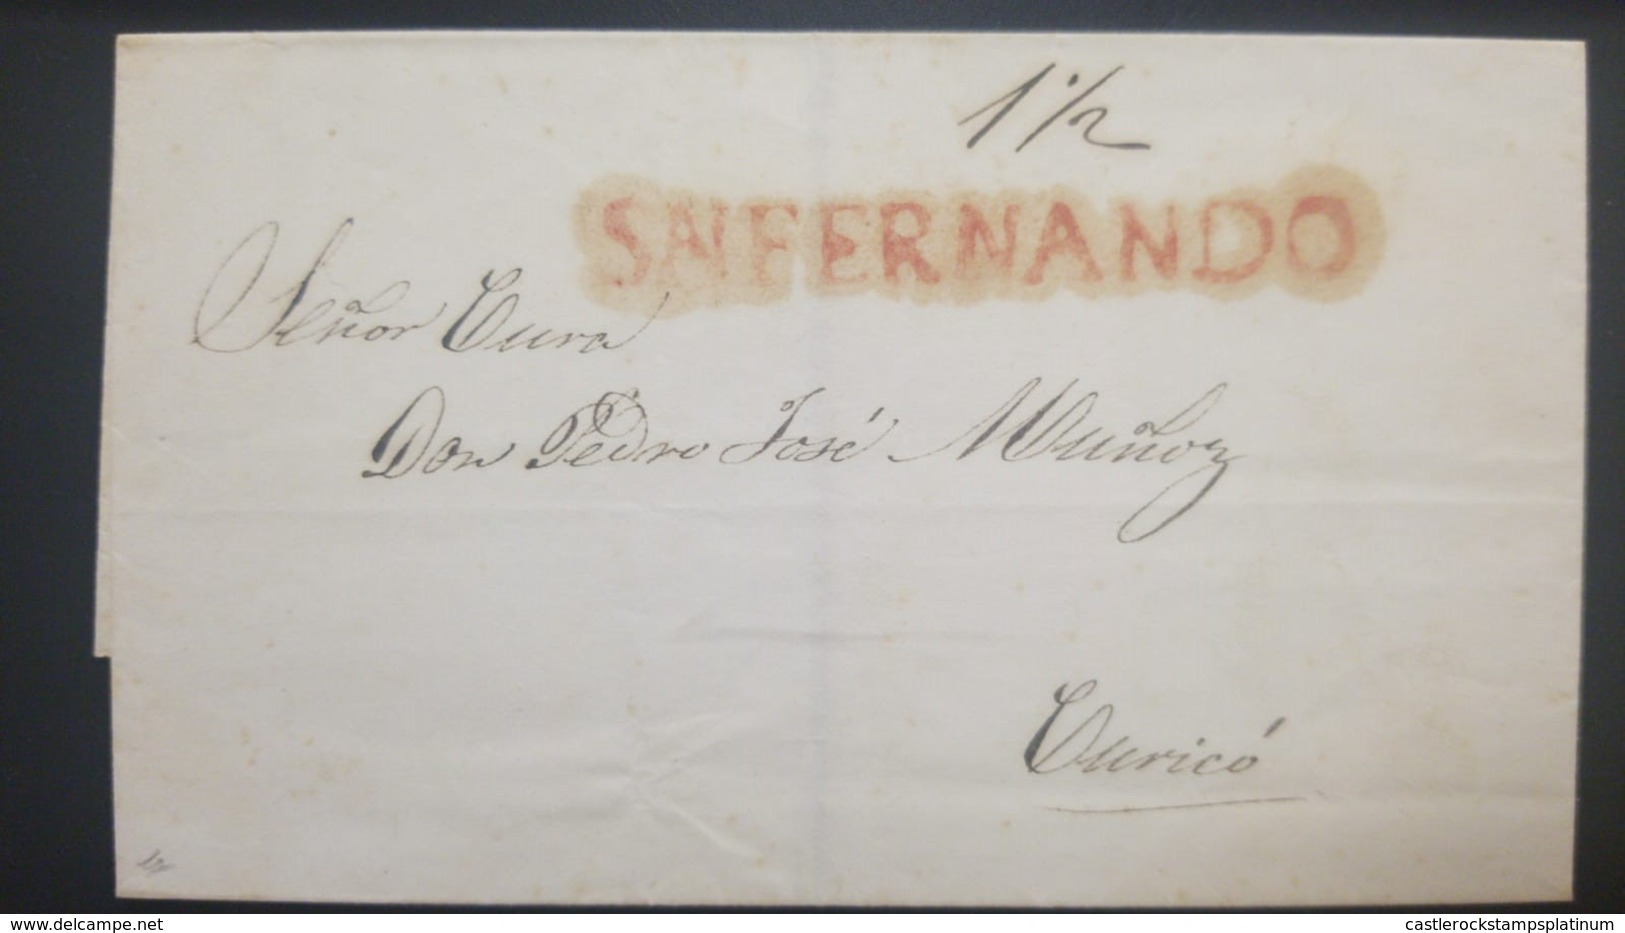 1 1/2
SNFERNANDO
Señor Cura
Don Pedro José Muñoz
Curicó
www.delcampe.net
castlerockstampsplatinum